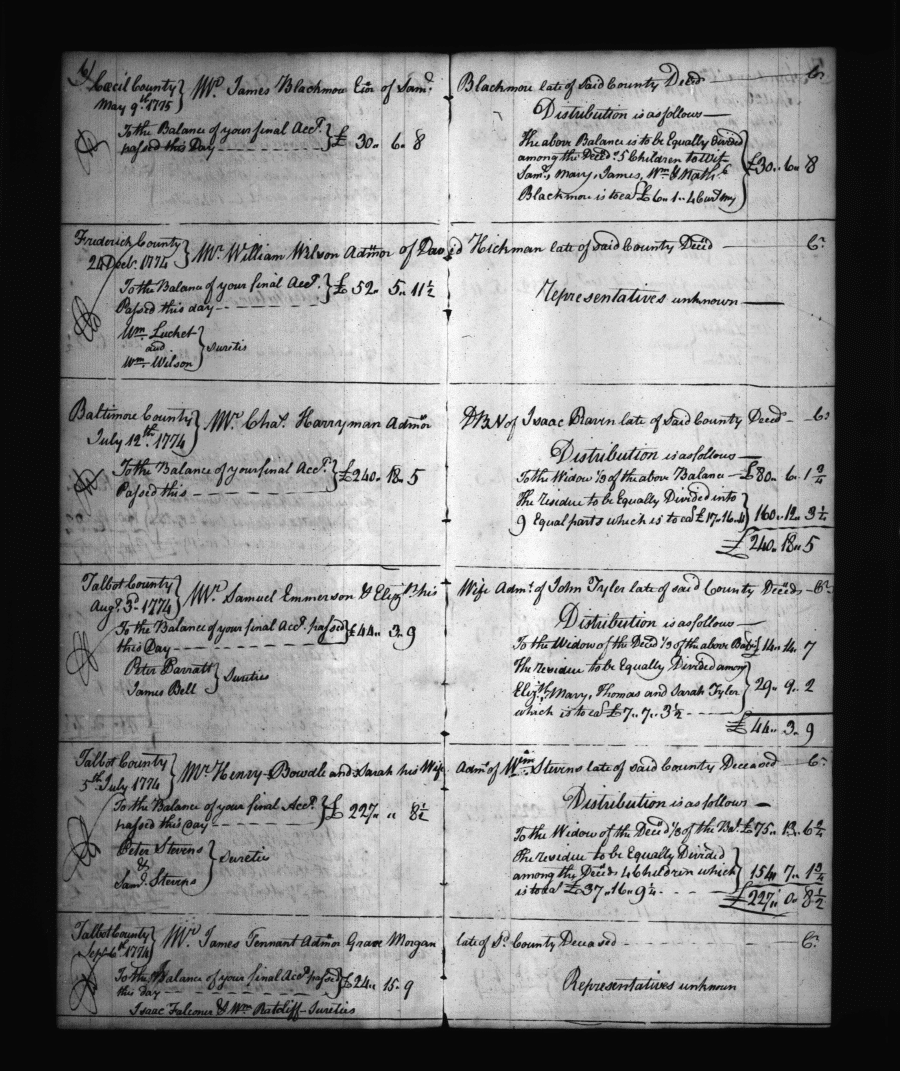 Cecil County
May 9th 1775
Mr. James Blackmore Exor of Saml
Blackmore late of said County Decd Cr
To the Balance of your final Acct.
passed this Day £ 30 .. 6 .. 8
Distribution is as follows
The above Balance is to be Equally divided
among the Decds 5 Children to Wit
Saml, Mary, James, Wm & Nathl
Blackmore is to ea £6 .. 1 .. 4 Curt my
£30 .. 6 .. 8
Frederick County
24 Decbr 1774
Mr. William Wilson Admor of David Hickman late of said County Decd Cr
To the Balance of your final Acct.
Passed this day £ 52 .. 5 .. 11½
Wm Lucket
and
Wm Wilson
Sureties
Representatives unknown
Baltimore County
July 12th 1774
Mr. Chas Harryman Admor
DBN of Isaac Raven late of said County Decd Cr
To the Balance of your final Acct.
Passed this £240 .. 18 .. 5
Distribution is as follows
To the Widow 1/3 of the above Balance £80 .. 6 .. 1¾
The residue to be Equally Divided into
9 Equal parts which is to ea £17 .. 16 .. 11
160 .. 12 .. 3¼
£240 .. 18 .. 5
Talbot County
Augt 3d 1774
Mr. Samuel Emmerson & Elizth his
Wife Admr of John Tyler late of said County Decd Cr
To the Balance of your final Acct. passed
this Day £44 .. 3 .. 9
Peter Barratt
James Bell
Sureties
Distribution is as follows
To the Widow of the Decd 1/3 of the above Bal £14 .. 14 .. 7
The residue to be Equally Divided among
Elizth, Mary, Thomas and Sarah Tyler
which is to ea £7 .. 7 .. 3½
29 .. 9 .. 2
£44 .. 3 .. 9
Talbot County
5th July 1774
Mr Henry Bowdle and Sarah his Wife
Admr of Wm Stevens late of said County Deceased Cr
To the Balance of your final Acct.
passed this Day £ 227 .. " .. 8½
Peter Stevens
&
Saml Stevens
Sureties
Distribution is as follows
To the Widow of the Decd 1/3 of the Bal. £75 .. 13 .. 6¾
The residue to be Equally Divided
among the Decds 4 Children which
is to ea £37 .. 16 .. 9¼
154 .. 7 .. 1¾
£227 .. 0 .. 8½
Talbot County
Sept 6th 1774
Mr. James Tennant Admor Grace Morgan
late of Sd County Deceased Cr
To the Balance of your final Acct passed
this day £24 .. 15 .. 9
Isaac Falconer & Wm Ratcliff Sureties
Representatives unknown